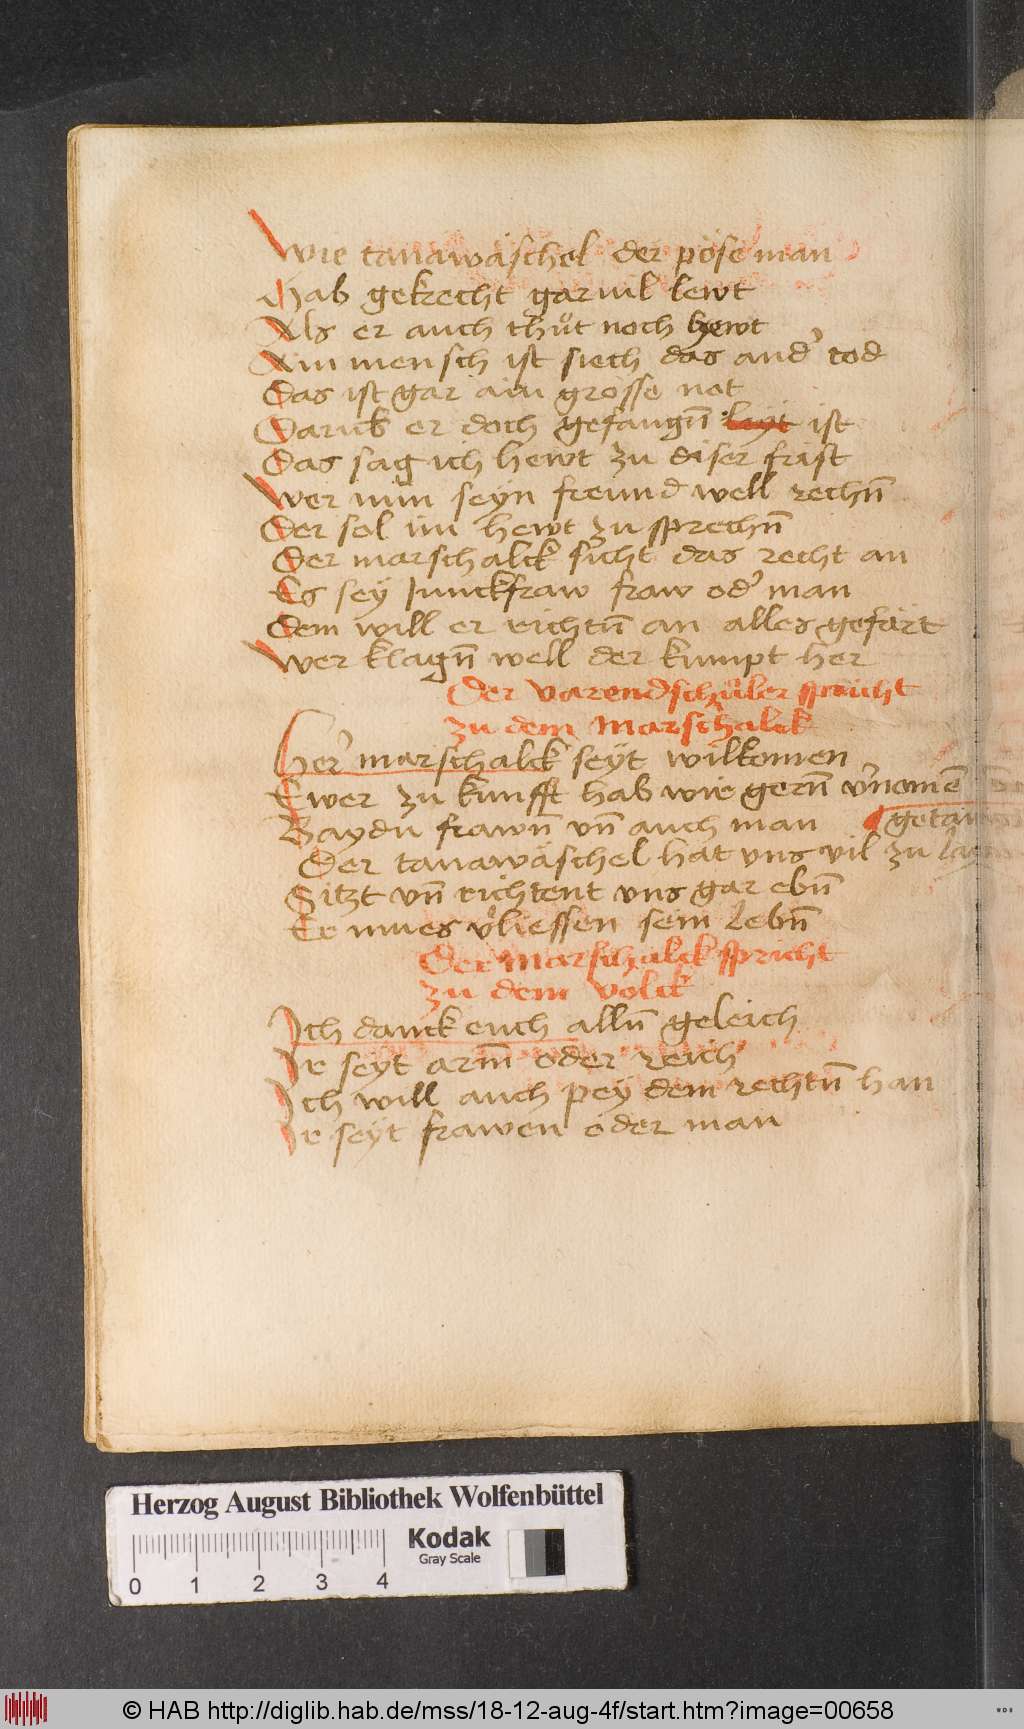 Wie tanawäschel der pöse man
Hab gekrecht gar uil lewt
Als er auch thůt noch hewt
Ain mensch ist siech das and' tod
Das ist gar ain grosse not
Darub̄ er doch gefangn̄ leyt ist
Das sag ich hewt zu diser frist
Wer nun seyn freund well rechn̄
Der sol im hewt zu sprechn̄
Der marschalck sicht das recht an
Es sey Junckfraw fraw od' man
Dem will er richtn̄ an alles gefärt
Wer klagn̄ well der kumpt her
Der varendschůler spricht
zu dem Marschalck
Her' marschalck seyt wilkomen
Ewer zu kunfft hab wie gern̄ v'nomē
Baydu frawn̄ vn̄ auch man
Der tanawäschel hat vns vil zu
Sitzt vn̄ richtent vns gar ebn̄
Er mues v'liessen sein lebn̄
Der Marschalck spricht
zu dem volck
Ich danck euch alln̄ geleich
Ir seyt arm̄ oder reich
Ich will auch pey dem rechtn̄ han
Ir seyt frawen oder man
Herzog August Bibliothek Wolfenbüttel
Kodak
Gray Scale
0 1 2 3 4
© HAB http://diglib.hab.de/mss/18-12-aug-4f/start.htm?image=00658